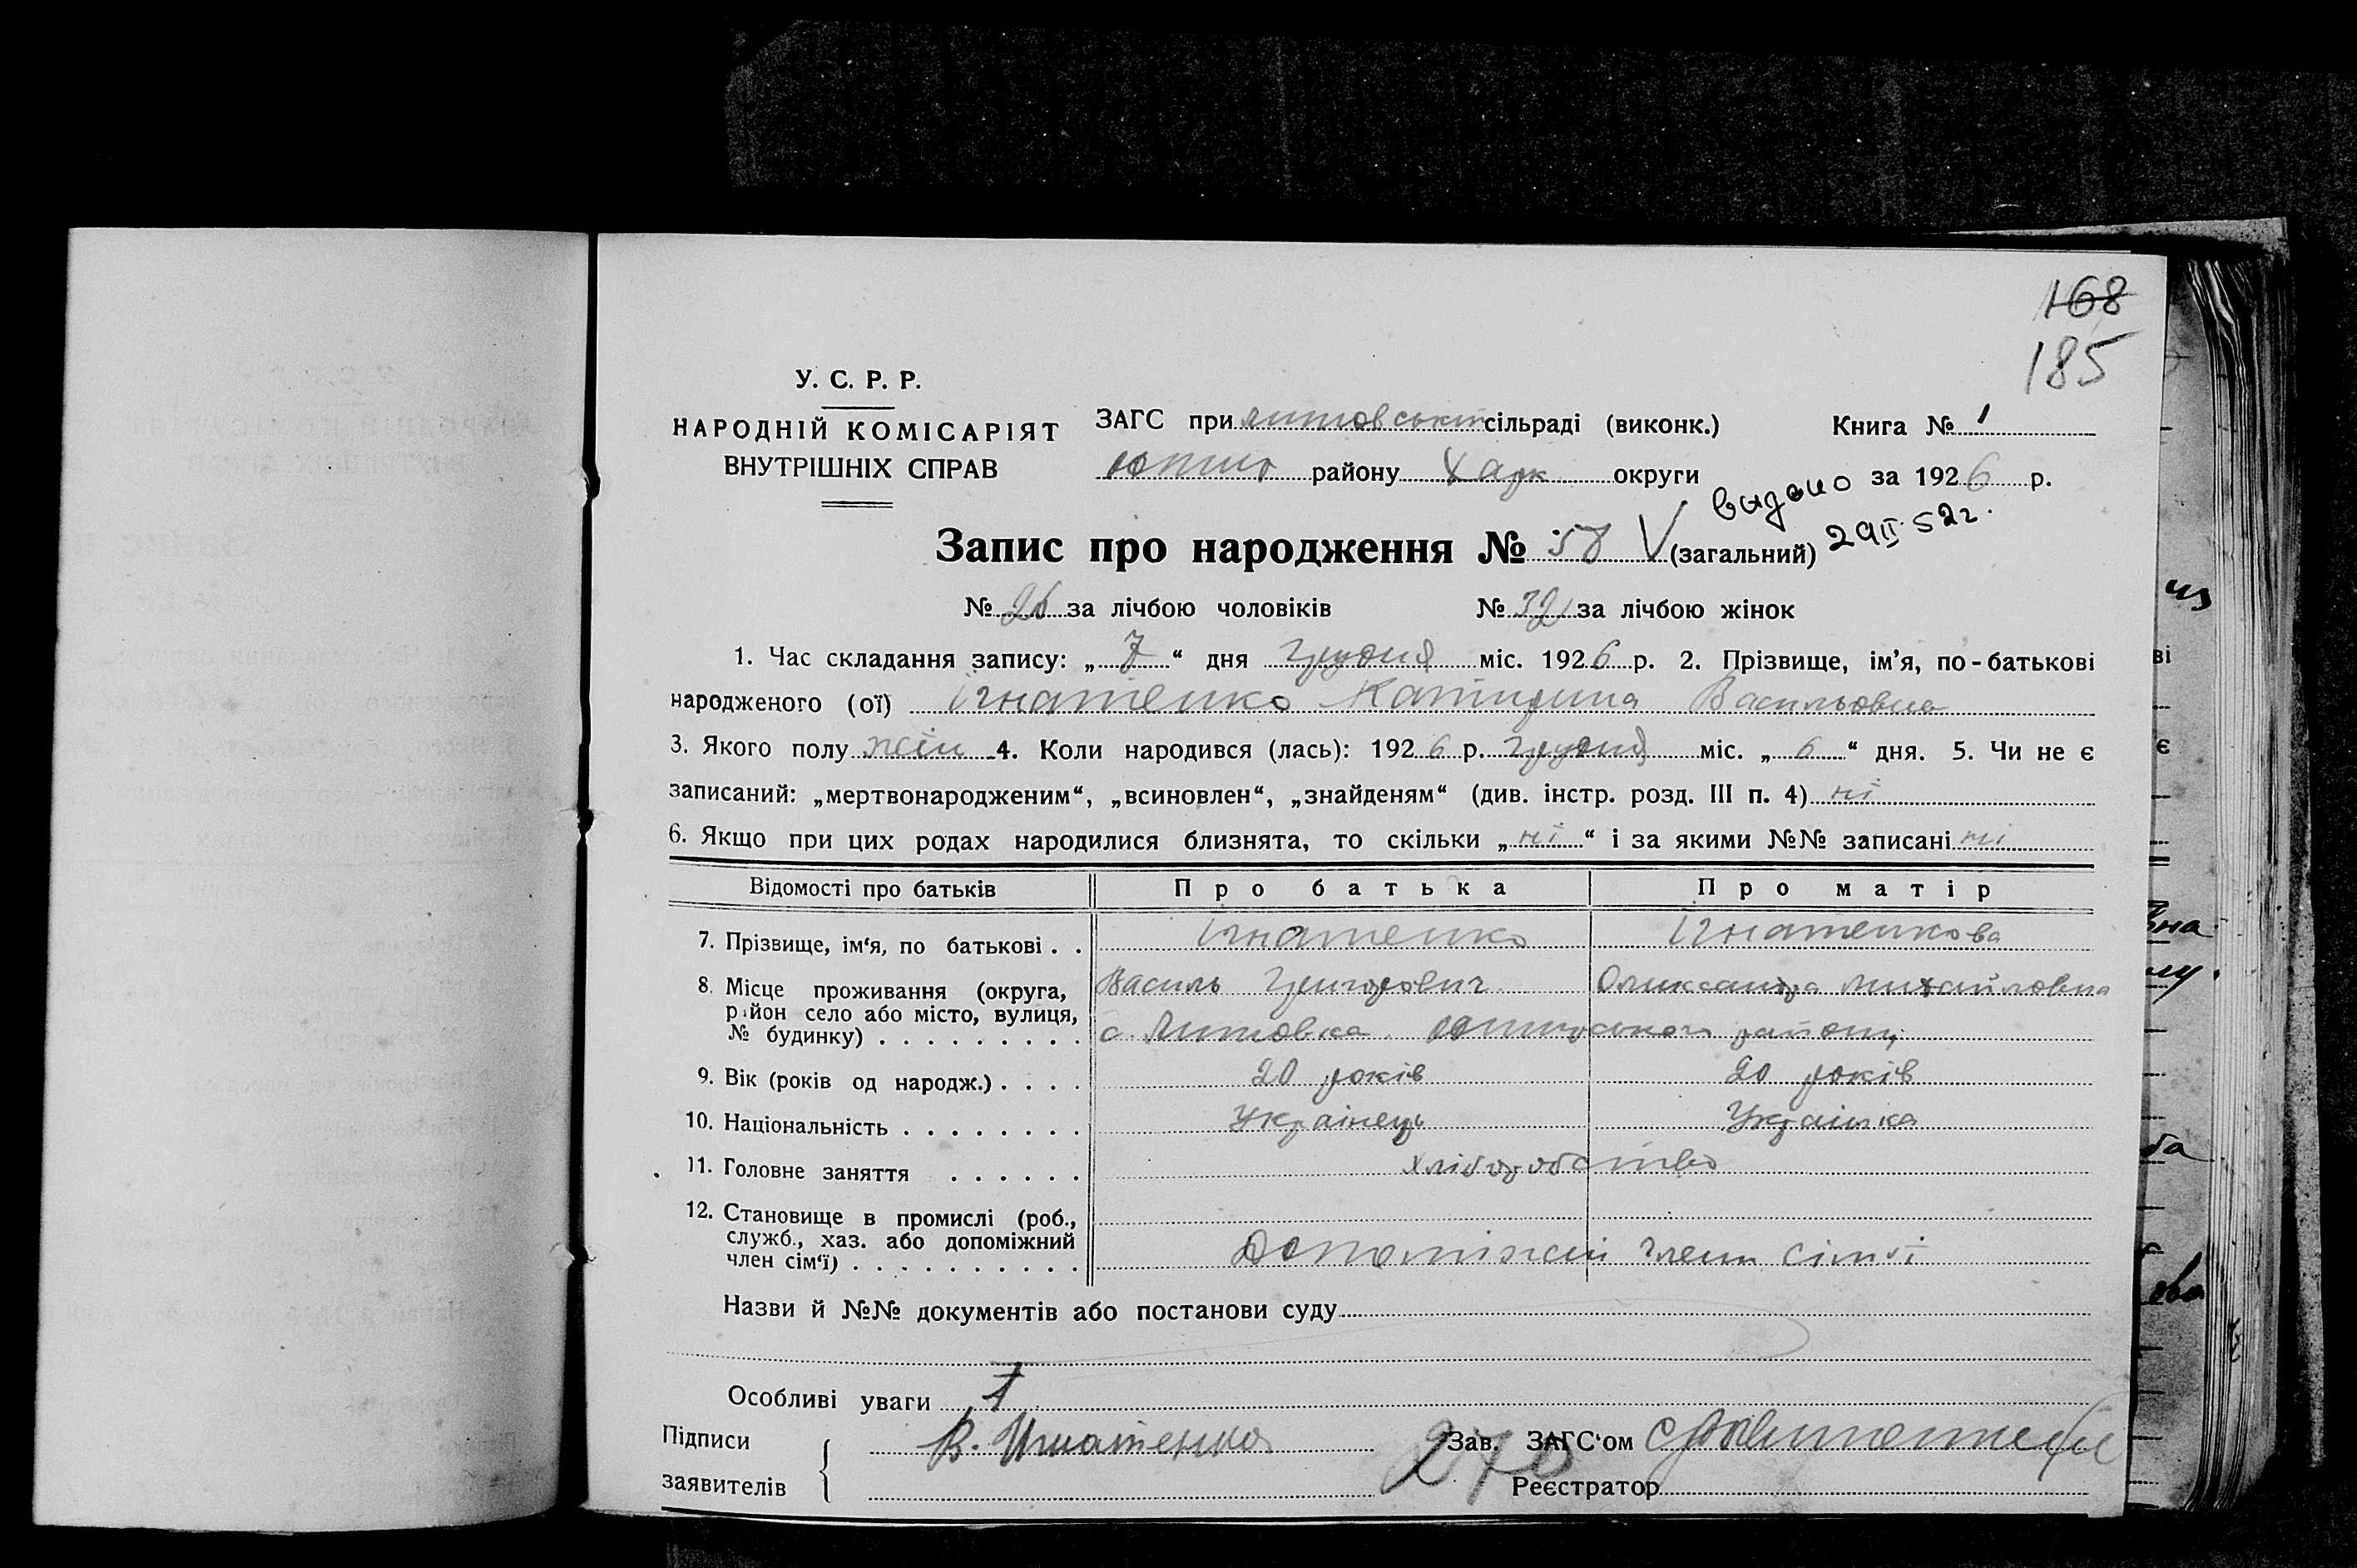 168
185
У. С. Р. Р.
НАРОДНІЙ КОМІСАРІЯТ
ВНУТРІШНІХ СПРАВ
ЗАГС при литовській сільраді (виконк.) Книга № 1
району Харк округи за 1926 р.
видано
29 II 52 г.
Запис про народження № 58 V (загальний)
№ 26 за лічбою чоловіків № 32 за лічбою жінок
1. Час складання запису: „ 7 “ дня Грудня міс. 1926 р. 2. Прізвище, ім’я, по-батькові
народженого (ої) Ігнатенко Катирина Васильовна
3. Якого полу жін 4. Коли народився (лась): 1926 р. Грудня міс. „ 6 “ дня. 5. Чи не є
записаний: „мертвонародженим“, „всиновлен“, „знайденям“ (див. інстр. розд. III п. 4) ні
6. Якщо при цих родах народилися близнята, то скільки „ ні “ і за якими №№ записані ні
Відомості про батьків Про батька Про матір
7. Прізвище, ім‘я, по батькові . . Ігнатенко Ігнатенкова
8. Місце проживання (округа, район село або місто, вулиця, № будинку) . . . . . . . . . Василь Григорович Олександра Михайловна
с. Литовка району
9. Вік (років од народж.) . . . . 20 років 20 років
10. Національність . . . . . . . . Українець Українка
11. Головне заняття . . . . . . хліборобство
12. Становище в промислі (роб., служб., хаз. або допоміжний член сім‘ї) . . . . . . . . . . Допоміжні члени сімї
Назви й №№ документів або постанови суду
Особливі уваги
Підписи заявителів В. Игнатенко
270
Зав. ЗАГС‘ом
Реєстратор